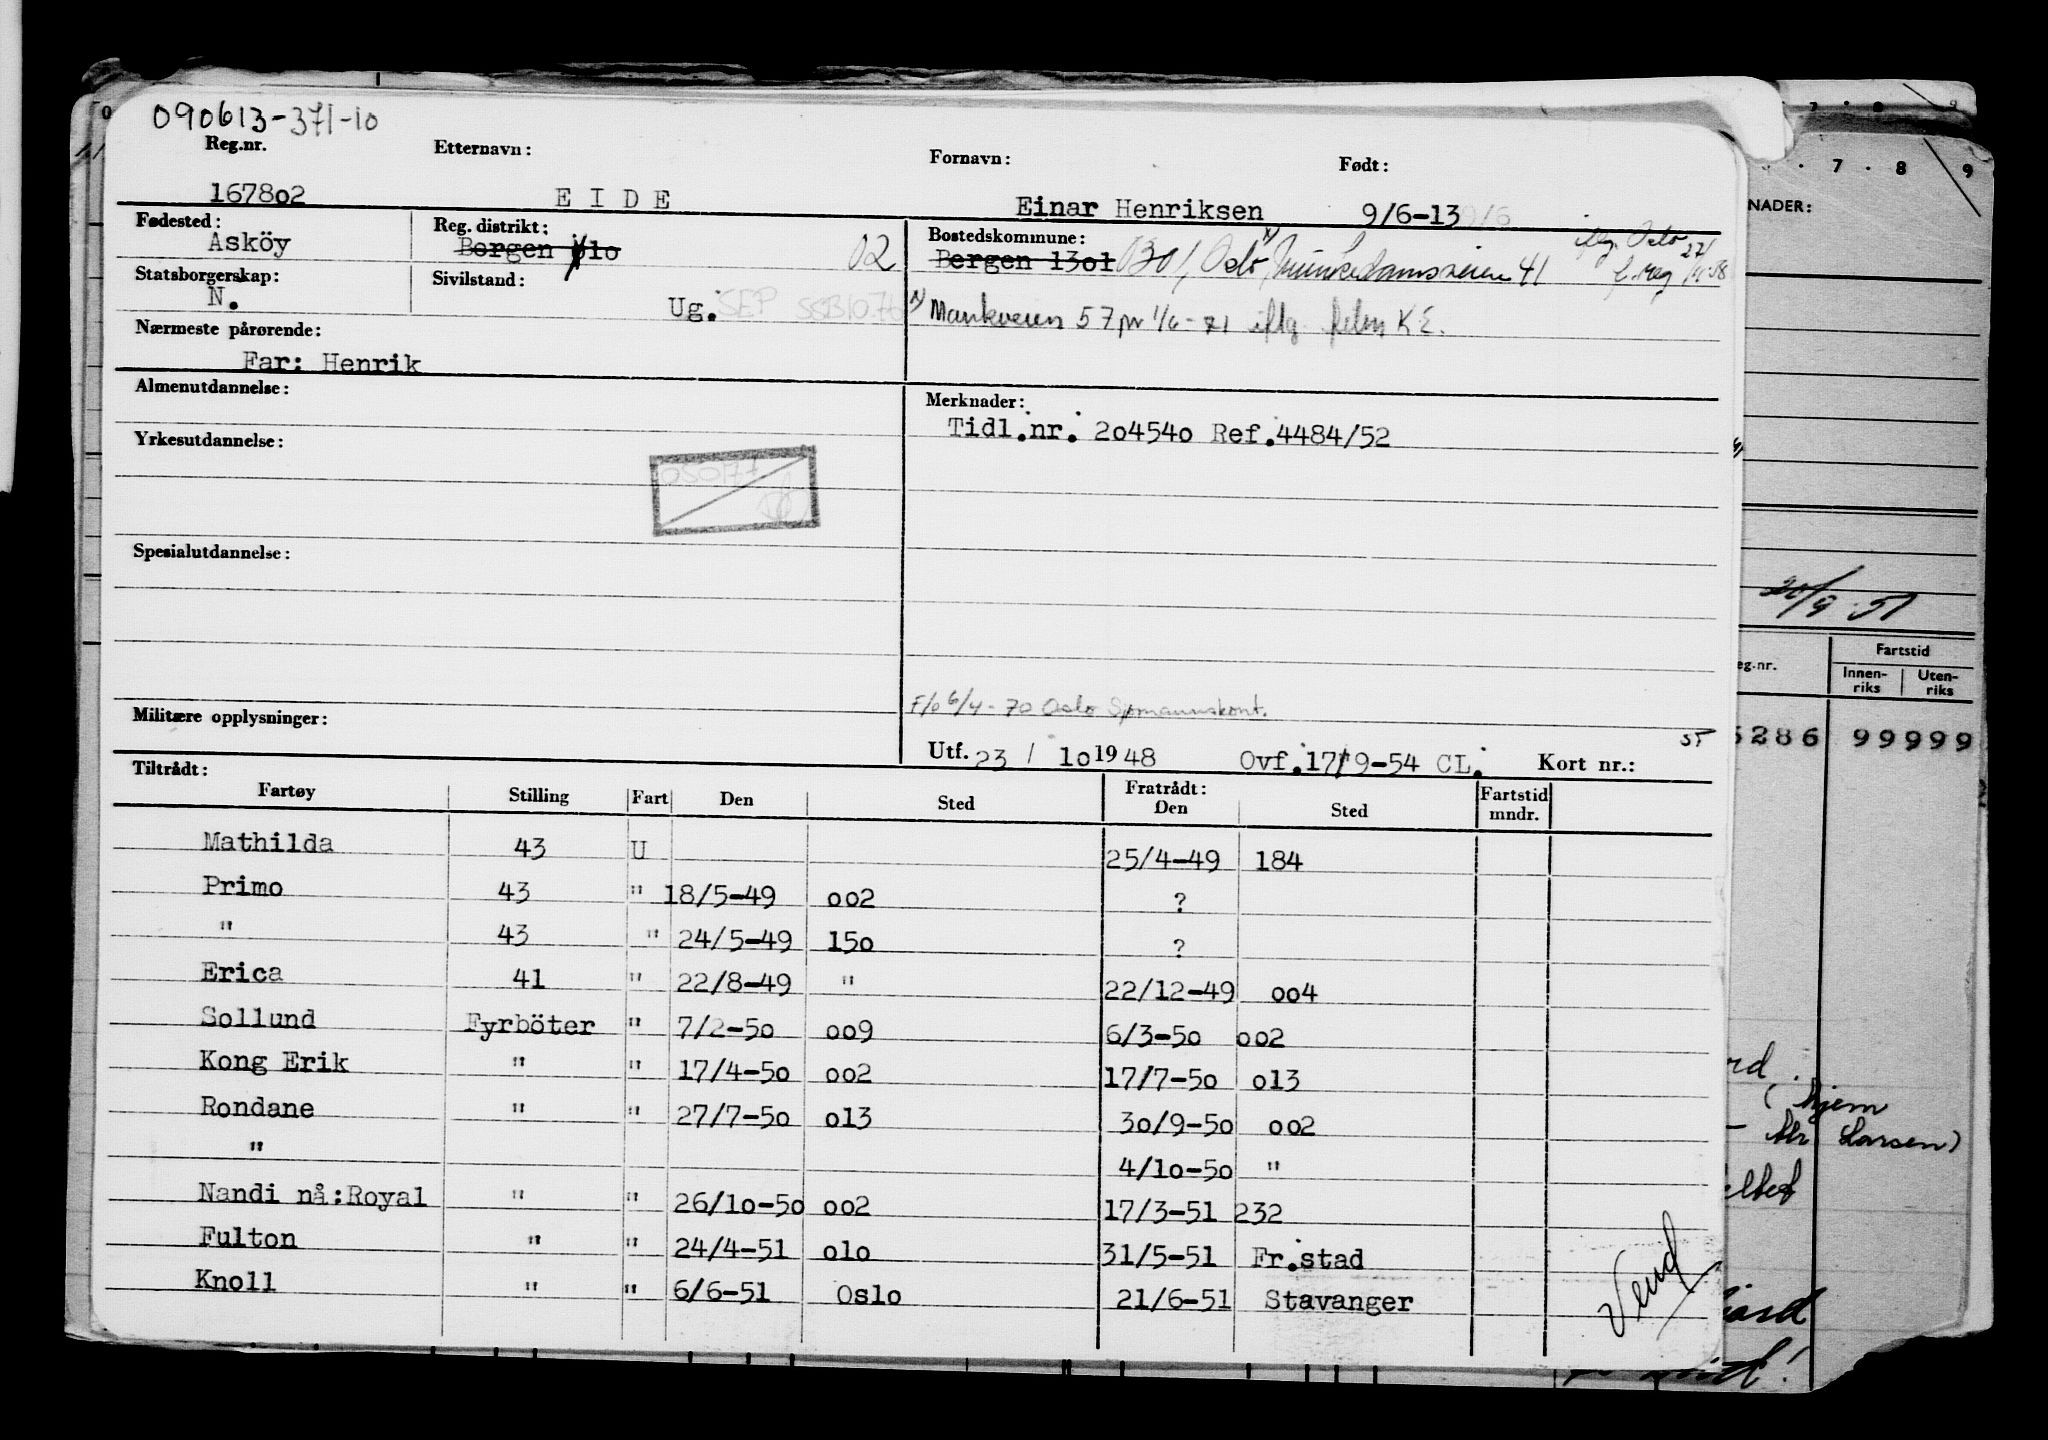 090613-371-10
Reg.nr. Etternavn: Fornavn: Født:
167802 EIDE Einar Henriksen 9/6-13
Fødested: Reg. distrikt: Bostedskommune:
Asköy Bergen 010 02 Bergen 1301 0301 Oslo x) Munkedamsveien 41
iflg. Oslo 27/
Statsborgerskap: Sivilstand:
N. Ug. SEP x) Mankveien 57 pr 1/6-71 iflg. K E.
Nærmeste pårørende:
Far: Henrik
Almenutdannelse: Merknader:
Tidl.nr. 204540 Ref.4484/52
Yrkesutdannelse:
050177
Spesialutdannelse:
F/o 6/4-70 Oslo Sjømannskont.
Militære opplysninger:
Utf. 23 / 10 1948 Ovf.17/9-54 CL. Kort nr.:
Tiltrådt: Fratrådt:
Fartøy Stilling Fart Den Sted Den Sted Fartstid mndr.
Mathilda 43 U 25/4-49 184
Primo 43 " 18/5-49 002 ?
" 43 " 24/5-49 150 ?
Erica 41 " 22/8-49 " 22/12-49 004
Sollund Fyrböter " 7/2-50 009 6/3-50 002
Kong Erik " " 17/4-50 002 17/7-50 013
Rondane " " 27/7-50 013 30/9-50 002
" 4/10-50 "
Nandi nå:Royal " " 26/10-50 002 17/3-51 232
Fulton " " 24/4-51 010 31/5-51 Fr.stad
Knoll " " 6/6-51 Oslo 21/6-51 Stavanger
Vend
7 . 8 9
NADER:
eg.nr. Fartstid
Innen-riks Uten-riks
5286 99999
(hjem
Larsen)